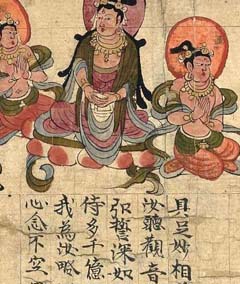 具足妙相
汝聽觀音
弘誓深如
侍多千億
我為汝略
心念不空